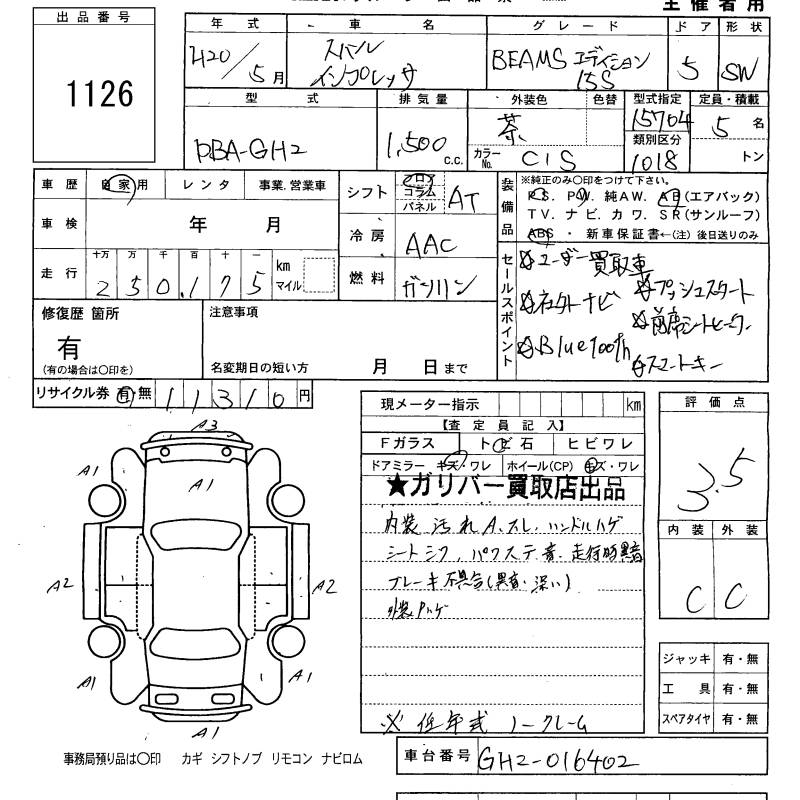 主催者用
出品番号
1126
年式 車名 グレード ドア 形状
H20/5月 スバル インプレッサ BEAMS エディション 15S 5 SW
型式 排気量 外装色 色替 型式指定 定員・積載
DBA-GH2 1,500 c.c. 茶 15704 5 名
カラーNo. C1S 類別区分 1018 トン
車歴 自家用 レンタ 事業.営業車
シフト フロア コラム パネル AT
車検 年 月
冷房 AAC
走行 十万 万 千 百 十 一
250.175 km マイル
燃料 ガソリン
装備品
※純正のみ〇印をつけて下さい。
P.S. P.W. 純AW. AB(エアバック)
TV. ナビ. カワ. SR(サンルーフ)
ABS. 新車保証書←(注)後日送りのみ
セールスポイント
☆ユーザー買取車
☆プッシュスタート
☆社外ナビ
☆前席シートヒーター
☆Bluetooth
☆スマートキー
修復歴 箇所
有
(有の場合は〇印を)
注意事項
名変期日の短い方 月 日まで
リサイクル券 有・無 11310円
現メーター指示 km
【査定員記入】
Fガラス トビ石 ヒビワレ
ドアミラー キズ・ワレ ホイール(CP) キズ・ワレ
★ガリバー買取店出品
内装 汚れ A.スレ. ハンドルハゲ
シートシワ. パワステ音. 走行時異音
ブレーキ不具合(異音・深い)
外装
※ 低年式 ノークレーム
評価点
3.5
内装 外装
C C
ジャッキ 有・無
工具 有・無
スペアタイヤ 有・無
A3
A1
A1
A1
A2
A2
A1
A1
A1
事務局預り品は〇印 カギ シフトノブ リモコン ナビロム
車台番号 GH2-016402